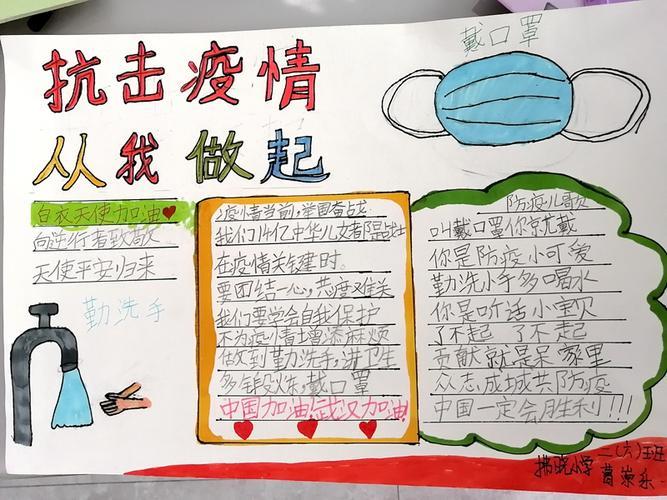 抗击疫情
从我做起
戴口罩
白衣天使加油
向逆行者致敬
天使平安归来
勤洗手
疫情当前,举国奋战
我们14亿中华儿女都是战士
在疫情关键时。
要团结一心,共度难关
我们要学会自我保护
不为疫情增添麻烦
做到勤洗手,讲卫生
多锻炼,戴口罩
中国加油!武汉加油!
防疫儿歌
叫戴口罩你就戴
你是防疫小可爱
勤洗小手多喝水
你是听话小宝贝
了不起 了不起
贡献就是呆家里
众志成城共防疫
中国一定会胜利!!!
拂晓小学 二(六)班